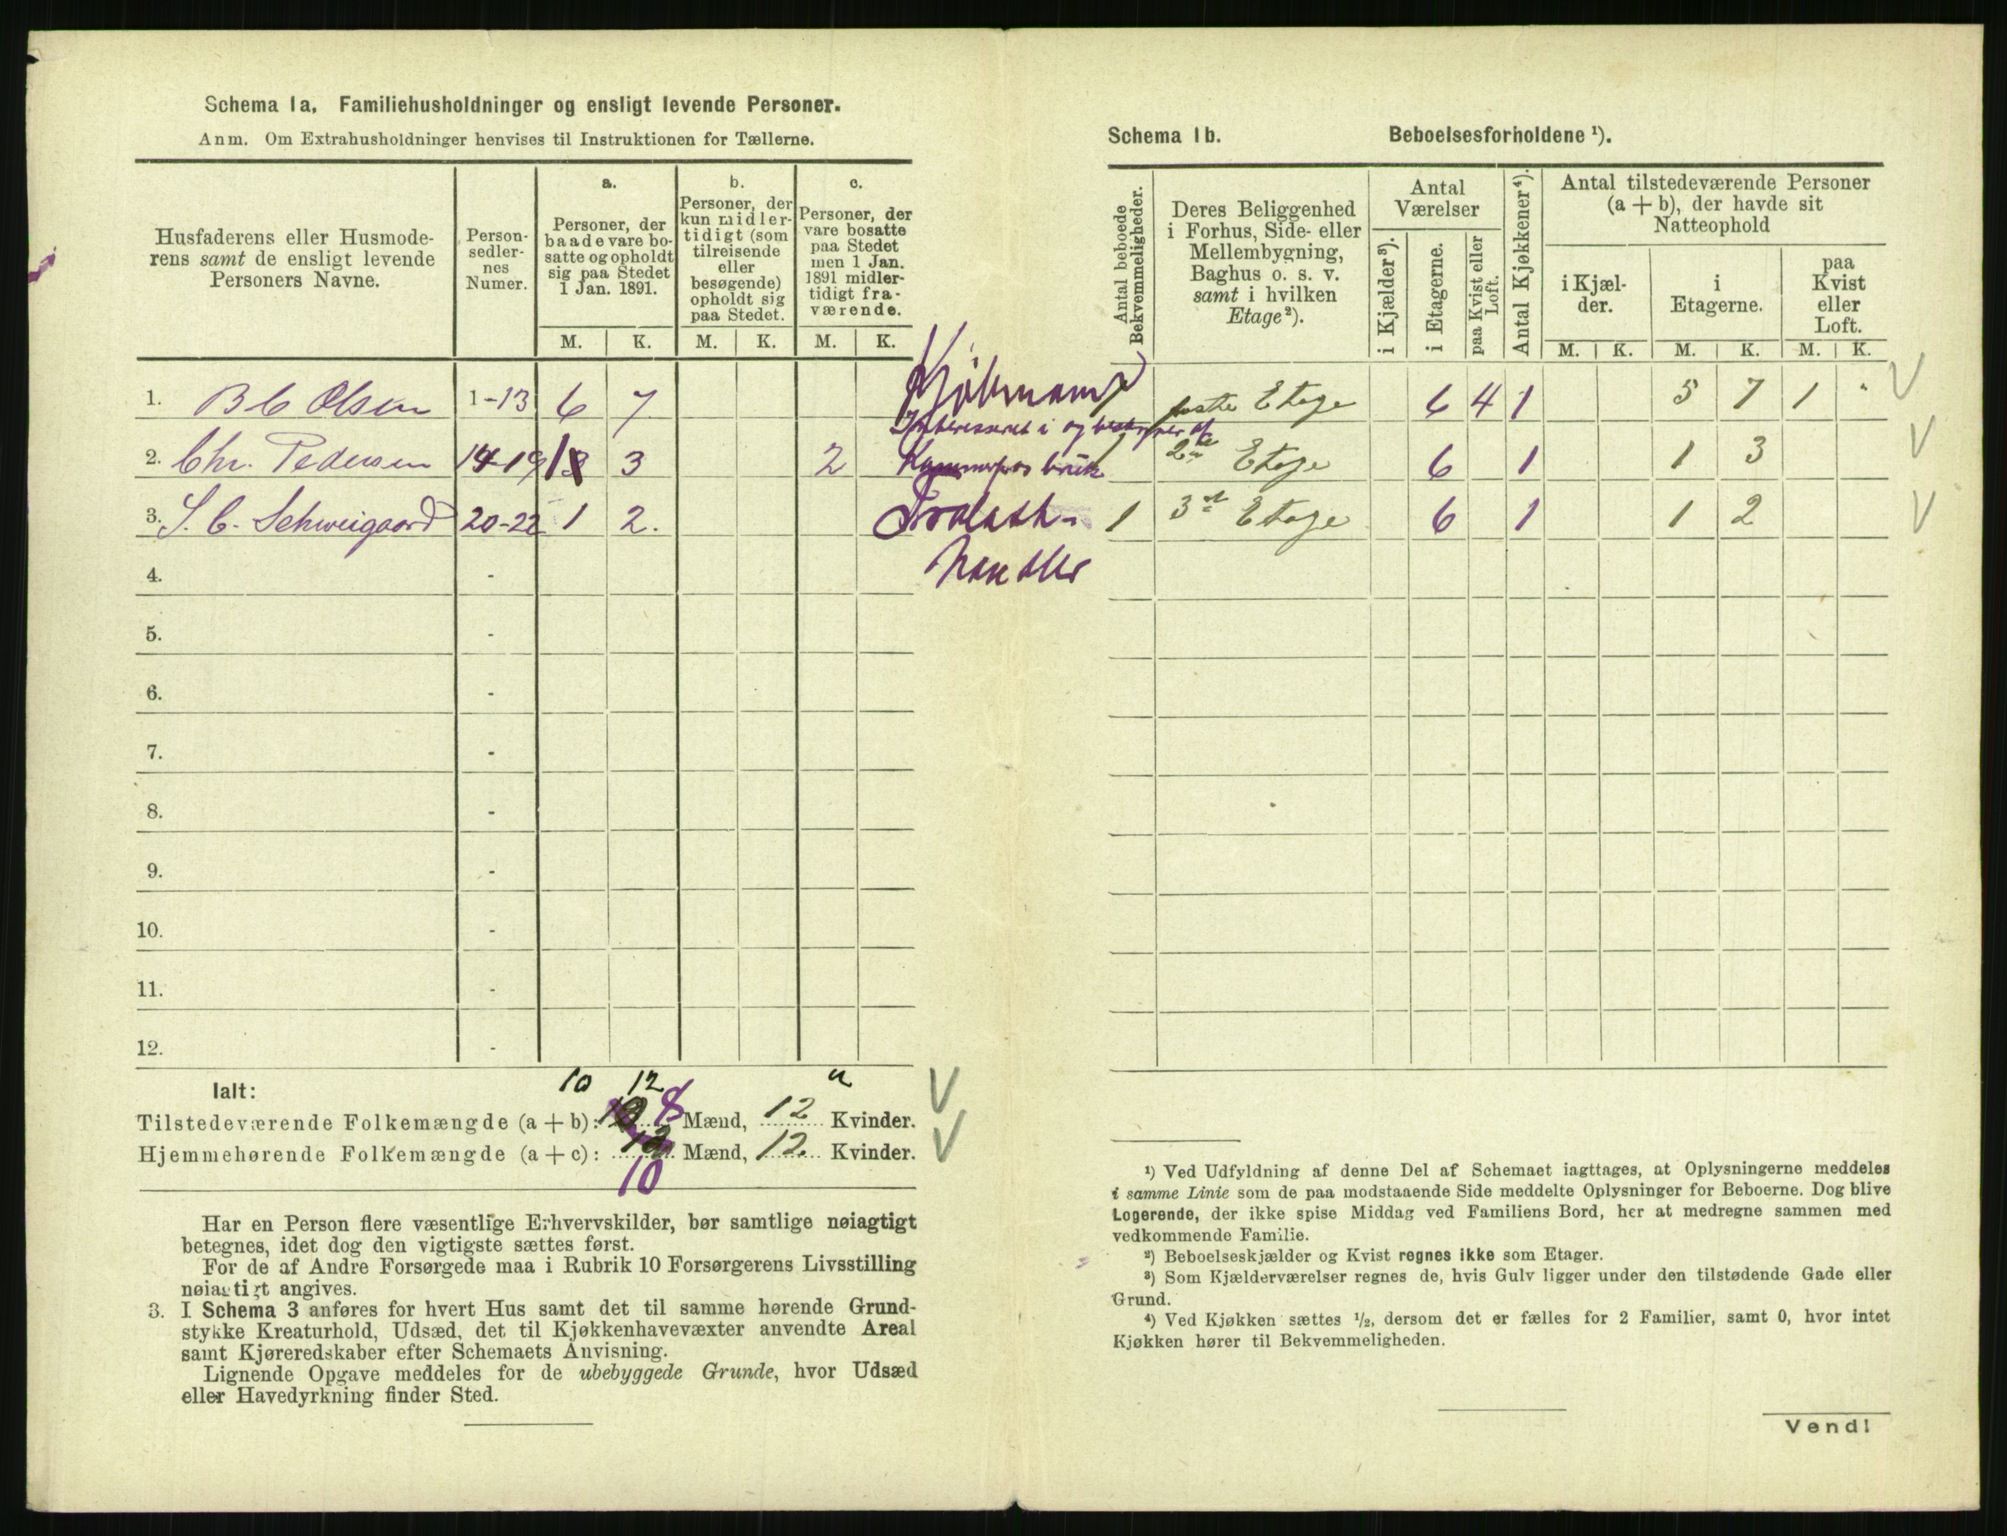 Schema 1a. Familiehusholdninger og ensligt levende Personer.
Anm. Om Extrahusholdninger henvises til Instruktionen for Tællerne.
Husfaderens eller Husmode-
rens samt de ensligt levende
Personers Navne.
Person-
sedler-
nes
Numer.
a.
Personer, der
baade vare bo-
satte og opholdt
sig paa Stedet
1 Jan. 1891.
b.
Personer, der
kun midler-
tidigt (som
tilreisende
eller
besøgende)
opholdt sig
paa Stedet.
c.
Personer, der
vare bosatte
paa Stedet
men 1 Jan.
1891 midler-
tidigt fra-
værende.
M. K. M. K. M. K.
1. B C Olsen 1-13 6 7
Kjøbmand
2. Chr. Pedersen 14-19 1 3 2
Interesseret i og
3. S. C. Schweigaard 20-22 1 2.
Trælast-
handler
4. -
5. -
6. -
7. -
8. -
9. -
10. -
11. -
12. -
Ialt: 10 12 "
Tilstedeværende Folkemængde (a + b): 8 Mænd, 12 Kvinder.
Hjemmehørende Folkemængde (a + c): 10 Mænd, 12 Kvinder.
Har en Person flere væsentlige Erhvervskilder, bør samtlige nøiagtigt
betegnes, idet dog den vigtigste sættes først.
For de af Andre Forsørgede maa i Rubrik 10 Forsørgerens Livsstilling
nøiagtigt angives.
3. I Schema 3 anføres for hvert Hus samt det til samme hørende Grund-
stykke Kreaturhold, Udsæd, det til Kjøkkenhavevæxter anvendte Areal
samt Kjøreredskaber efter Schemaets Anvisning.
Lignende Opgave meddeles for de ubebyggede Grunde, hvor Udsæd
eller Havedyrkning finder Sted.
Schema 1b. Beboelsesforholdene ¹).
Antal beboede
Bekvemmeligheder.
Deres Beliggenhed
i Forhus, Side- eller
Mellembygning,
Baghus o. s. v.
samt i hvilken
Etage²).
Antal
Værelser
i Kjælder³).
i Etagerne.
paa Kvist eller
Loft.
Antal Kjøkkener⁴).
Antal tilstedeværende Personer
(a + b), der havde sit
Natteophold
i Kjæl-
der.
i
Etagerne.
paa
Kvist
eller
Loft.
M. K. M. K. M. K.
1 første Etage 6 4 1 5 7 1 "
1 2den Etage 6 1 1 3
1 3die Etage 6 1 1 2
¹) Ved Udfyldning af denne Del af Schemaet iagttages, at Oplysningerne meddeles
i samme Linie som de paa modstaaende Side meddelte Oplysninger for Beboerne. Dog blive
Logerende, der ikke spise Middag ved Familiens Bord, her at medregne sammen med
vedkommende Familie.
²) Beboelseskjælder og Kvist regnes ikke som Etager.
³) Som Kjælderværelser regnes de, hvis Gulv ligger under den tilstødende Gade eller
Grund.
⁴) Ved Kjøkken sættes ½, dersom det er fælles for 2 Familier, samt 0, hvor intet
Kjøkken hører til Bekvemmeligheden.
Vend!